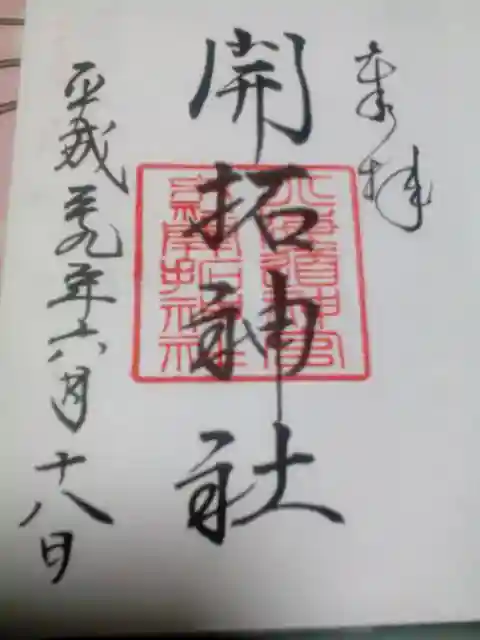 奉拝
開拓神社
北海道神宮
開拓神社
平成二十九年六月十八日